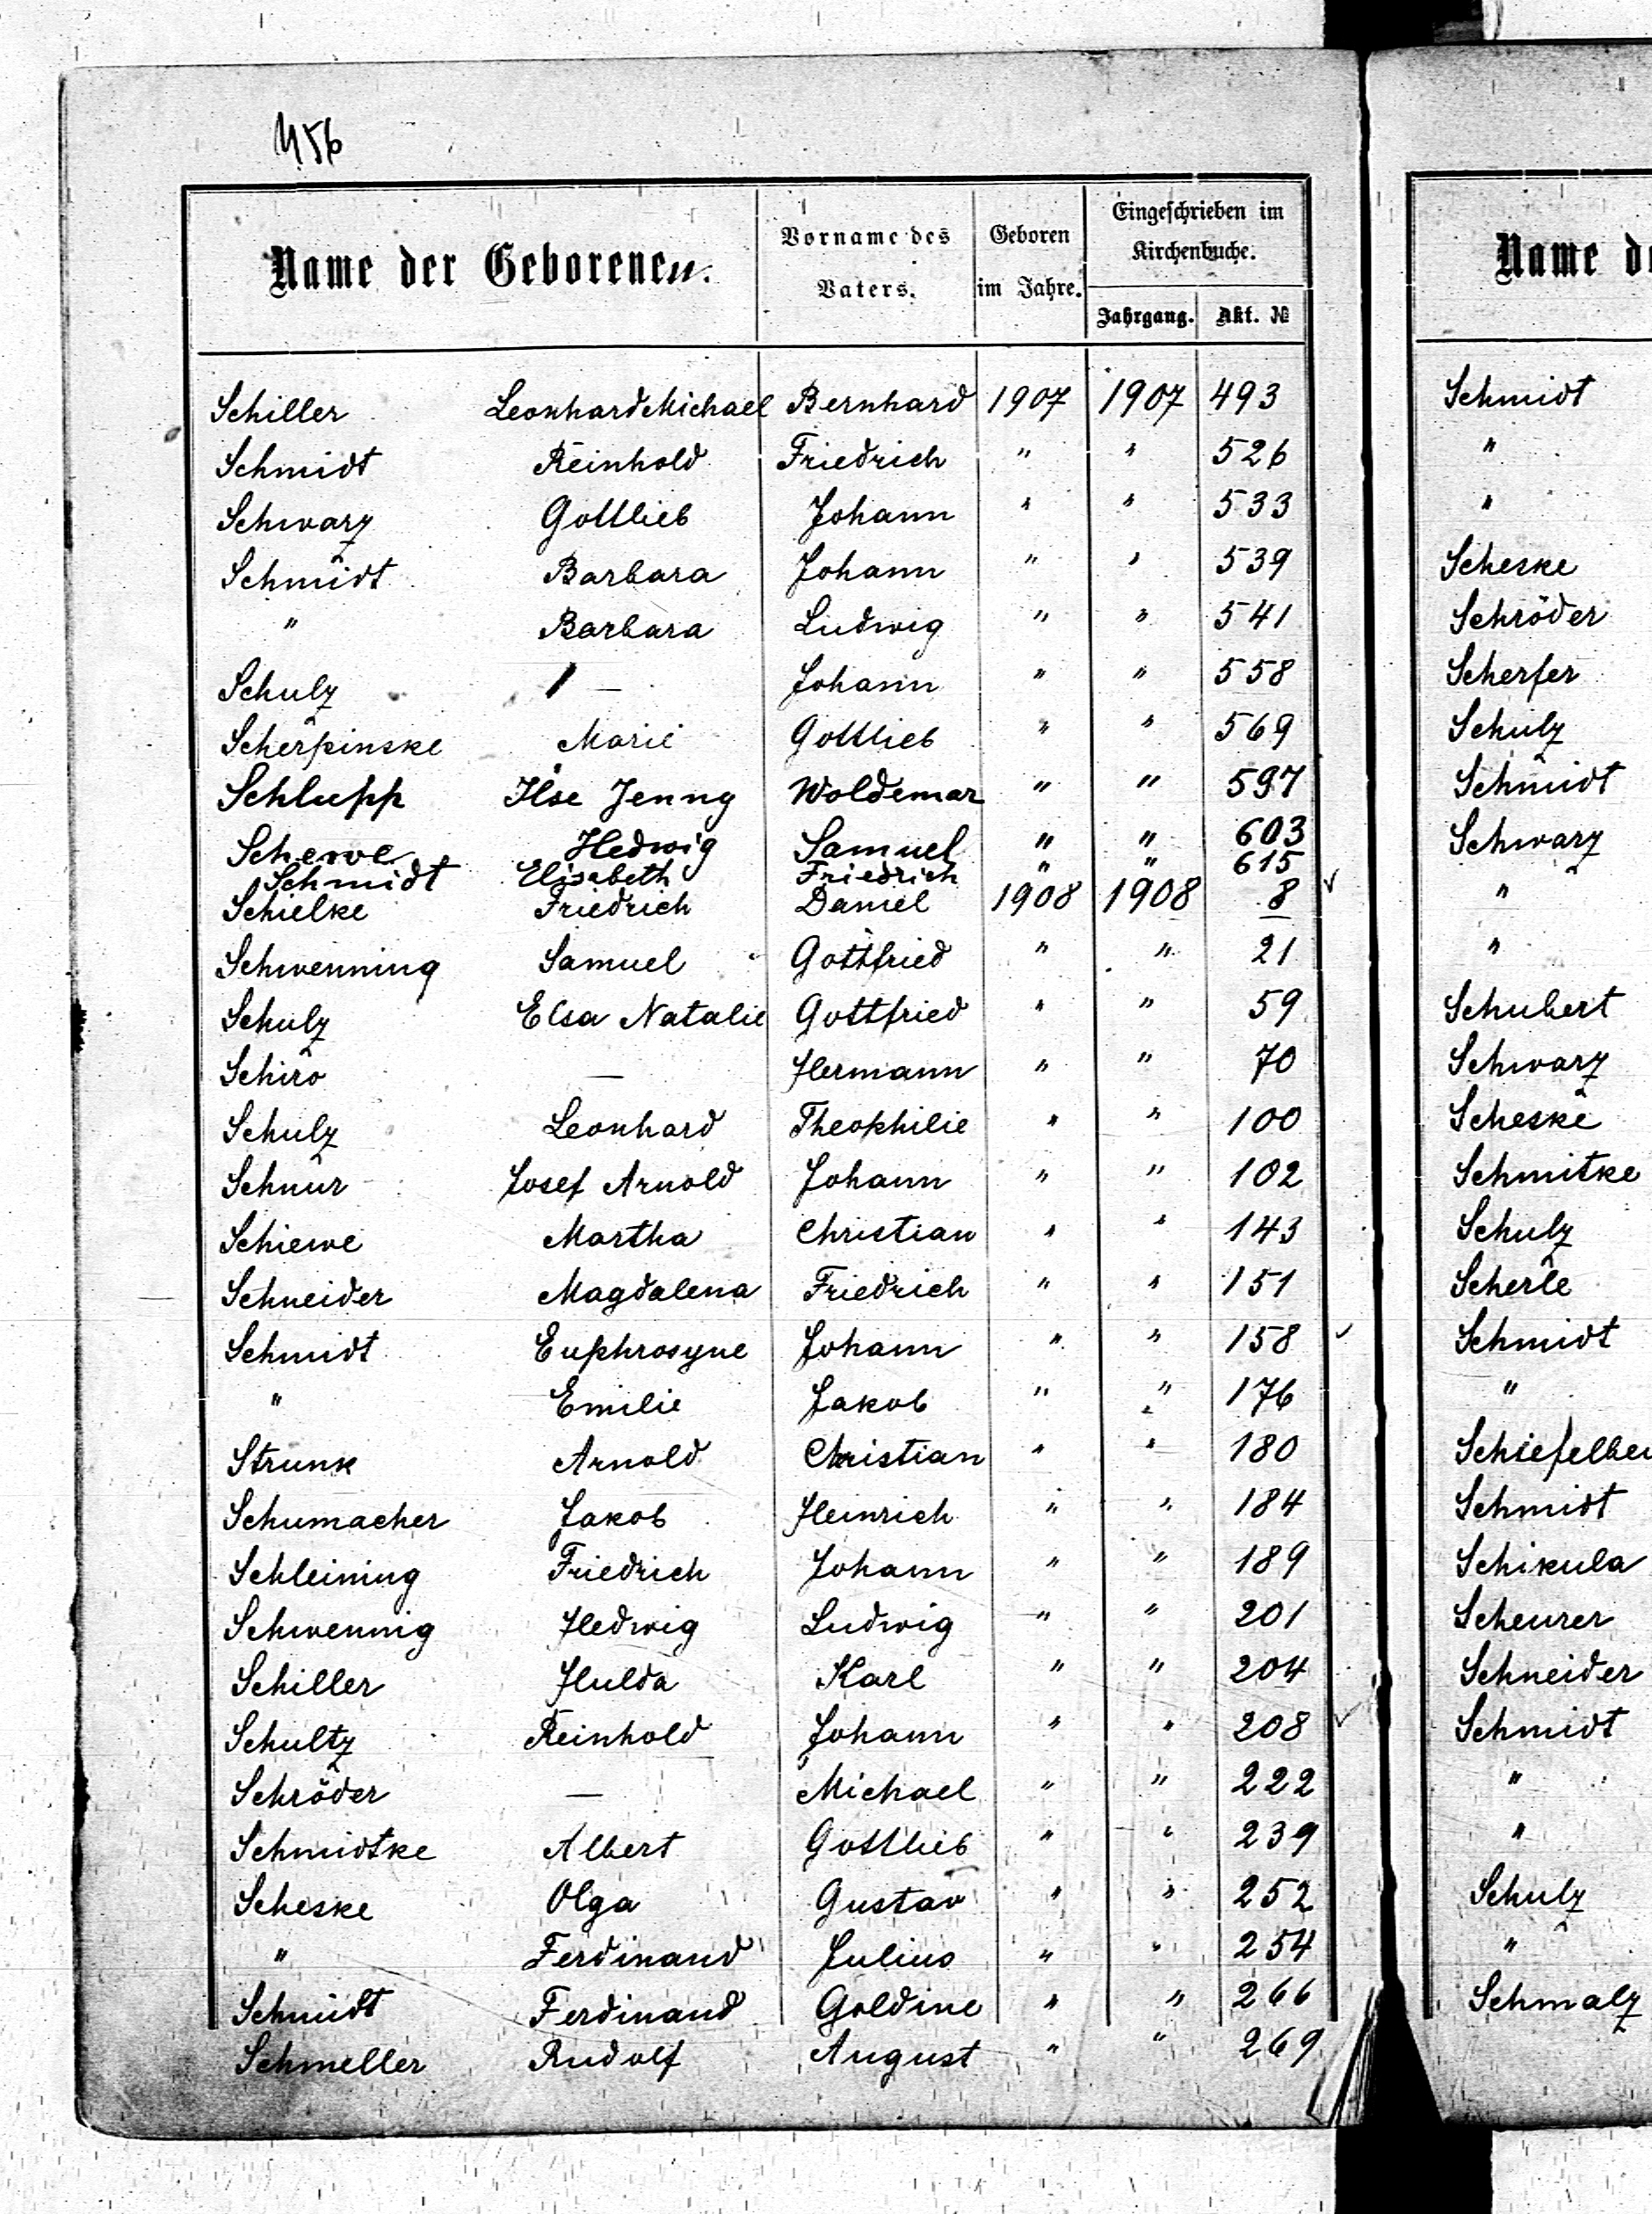 456
Name der Geborenen. Vorname des Vaters. Geboren im Jahre. Eingeschrieben im Kirchenbuche.
Jahrgang. Akt. №
Schiller Leonhard Michael Bernhard 1907 1907 493
Schmidt Reinhold Friedrich " " 526
Schwarz Gottlieb Johann " " 533
Schmidt Barbara Johann " " 539
" Barbara Ludwig " " 541
Schulz — Johann " " 558
Scherpinske Marie Gottlieb " " 569
Schlupp Ilse Jenny Woldemar " " 597
Schewe Hedwig Samuel " " 603
Schmidt Elisabeth Friedrich " " 615
Schielke Friedrich Daniel 1908 1908 8
Schwenning Samuel Gottfried " " 21
Schulz Elsa Natalie Gottfried " " 59
Schiro — Hermann " " 70
Schulz Leonhard Theophilie " " 100
Schnur Josef Arnold Johann " " 102
Schiewe Martha Christian " " 143
Schneider Magdalena Friedrich " " 151
Schmidt Euphrosyne Johann " " 158
" Emilie Jakob " " 176
Strunk Arnold Christian " " 180
Schumacher Jakob Heinrich " " 184
Schleining Friedrich Johann " " 189
Schwennig Hedwig Ludwig " " 201
Schiller Hulda Karl " " 204
Schultz Reinhold Johann " " 208
Schröder — Michael " " 222
Schmidtke Albert Gottlieb " " 239
Scheske Olga Gustav " " 252
" Ferdinand Julius " " 254
Schmidt Ferdinand Goldine " " 266
Schmeller Rudolf August " " 269
Name de
Schmidt
"
"
Scheske
Schröder
Scherfer
Schulz
Schmidt
Schwarz
"
"
Schubert
Schwarz
Scheske
Schmitke
Schulz
Scherle
Schmidt
"
Schiefelbei
Schmidt
Schikula
Scheurer
Schneider
Schmidt
"
"
Schulz
"
Schmalz